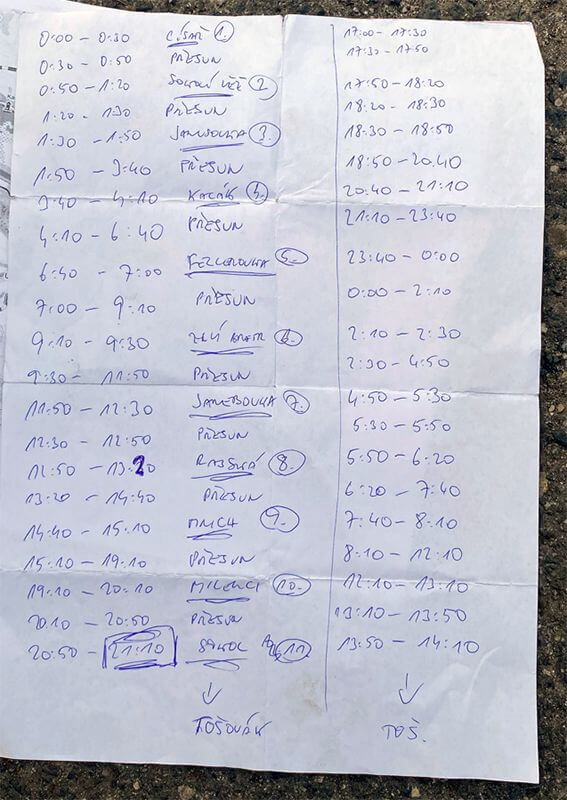 0:00 – 0:30 CÍSAŘ 1. 17:00 – 17:30
0:30 – 0:50 PŘESUN 17:30 – 17:50
0:50 – 1:20 SOKOLÍ VĚŽ 2 17:50 – 18:20
1:20 – 1:30 PŘESUN 18:20 – 18:30
1:30 – 1:50 3. 18:30 – 18:50
1:50 – 3:40 PŘESUN 18:50 – 20:40
3:40 – 4:10 4. 20:40 – 21:10
4:10 – 6:40 PŘESUN 21:10 – 23:40
6:40 – 7:00 5. 23:40 – 0:00
7:00 – 9:10 PŘESUN 0:00 – 2:10
9:10 – 9:30 6. 2:10 – 2:30
9:30 – 11:50 PŘESUN 2:30 – 4:50
11:50 – 12:30 7. 4:50 – 5:30
12:30 – 12:50 PŘESUN 5:30 – 5:50
12:50 – 13:20 RABSKÁ 8. 5:50 – 6:20
13:20 – 14:40 PŘESUN 6:20 – 7:40
14:40 – 15:10 MNICH 9. 7:40 – 8:10
15:10 – 19:10 PŘESUN 8:10 – 12:10
19:10 – 20:10 MILENCI 10. 12:10 – 13:10
20:10 – 20:50 PŘESUN 13:10 – 13:50
20:50 – 21:10 SOKOL 11 13:50 – 14:10
TOŠOVÁK TOŠ.